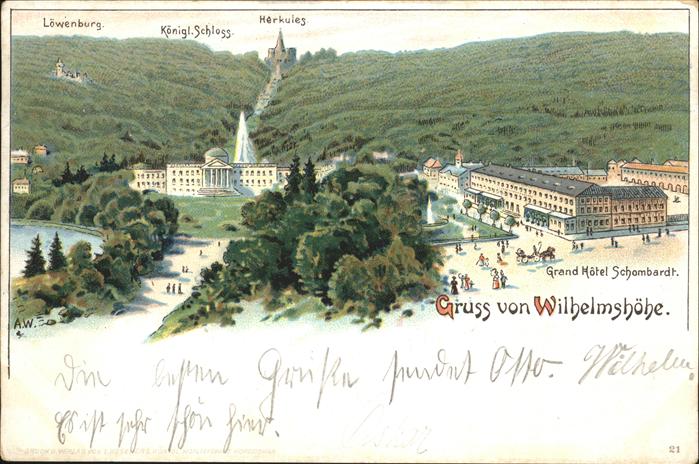 Löwenburg.
Königl. Schloss.
Herkules
Grand Hôtel Schombardt.
Gruss von Wilhelmshöhe.
A.W.
Die besten Grüße sendet Otto. Wilhelm.
Es ist sehr schön hier.
Oskar
21